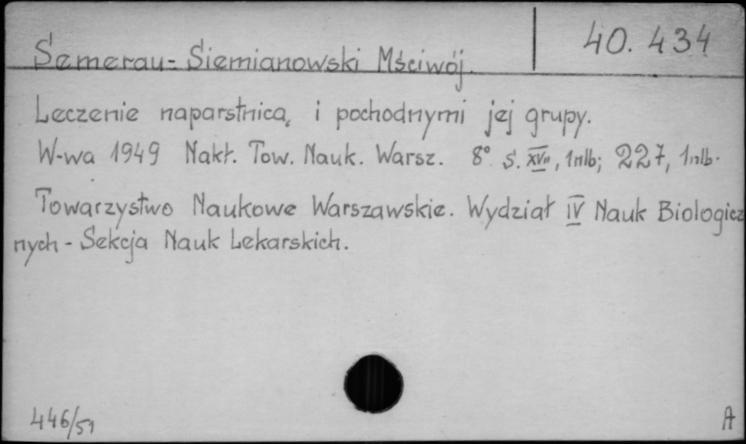 40.434
Semerau-Siemianowski Mściwój.
Leczenie naparstnicą i pochodnymi jej grupy.
W-wa 1949 Nakł. Tow. Nauk. Warsz. 8° s. 1nlb; 227, 1nlb.
Towarzystwo Naukowe Warszawskie. Wydział IV Nauk Biologicz
nych - Sekcja Nauk Lekarskich.
446/51 A